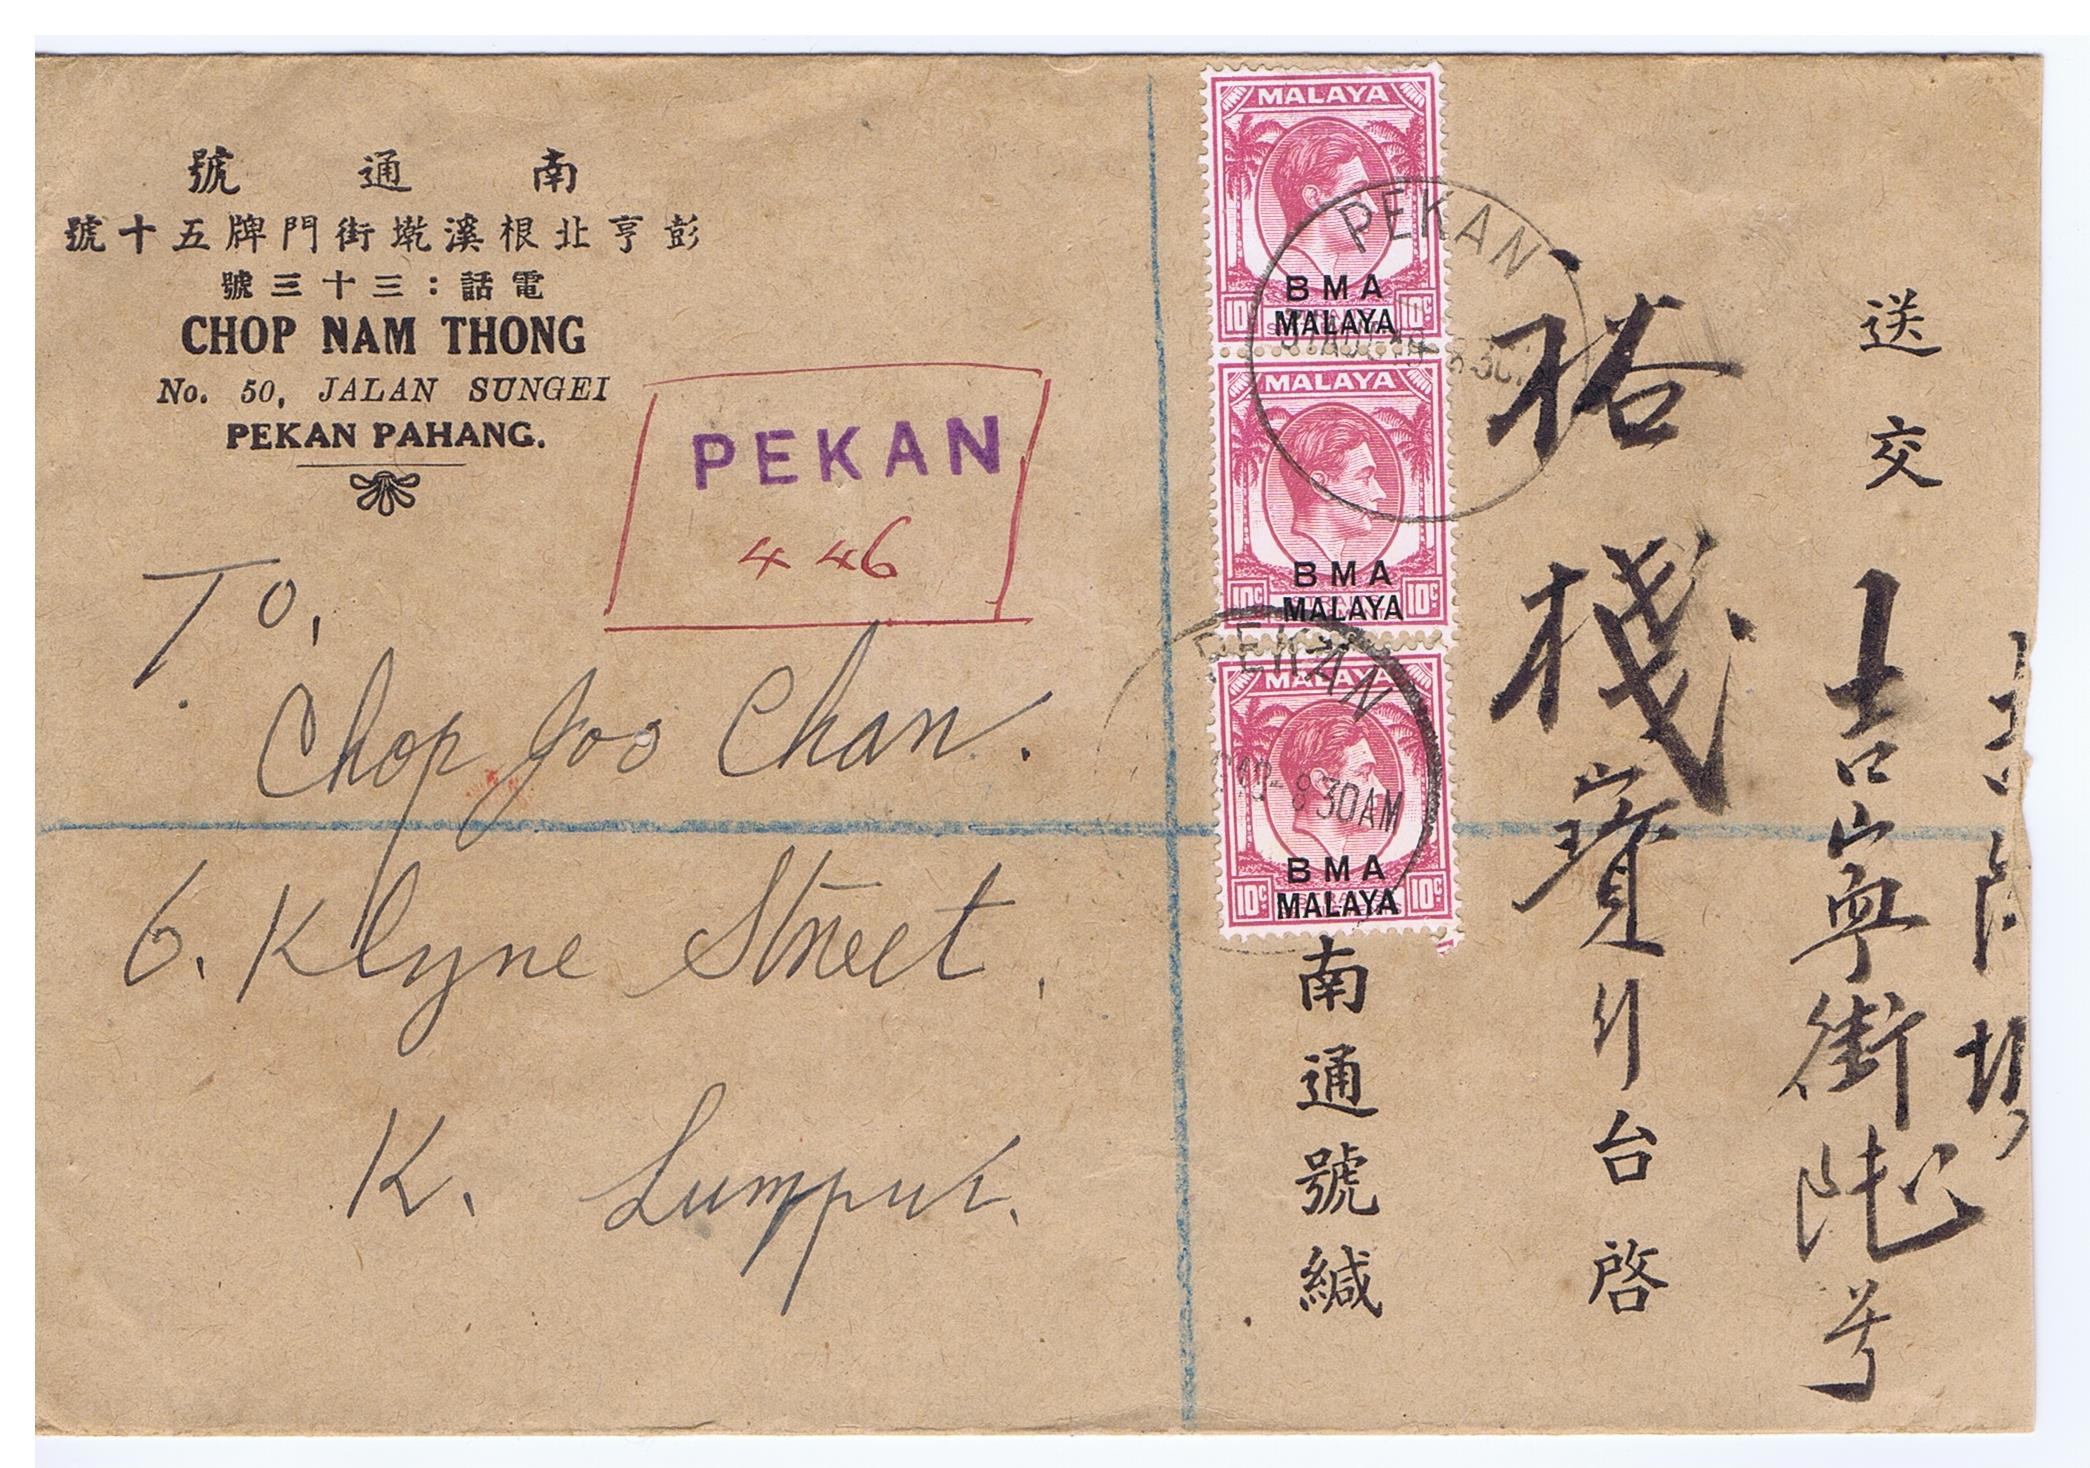 南通號
彭亨北根溪墘街門牌五十號
電話：三十三號
CHOP NAM THONG
No. 50, JALAN SUNGEI
PEKAN PAHANG.
PEKAN
446
To,
Chop Joo Chan.
6. Klyne Street,
K. Lumpur.
MALAYA
BMA
MALAYA
10c 10c
MALAYA
BMA
MALAYA
10c 10c
MALAYA
BMA
MALAYA
10c 10c
PEKAN
PEKAN
830AM
送交
吉寧街 号
裕棧寶行台啓
南通號緘